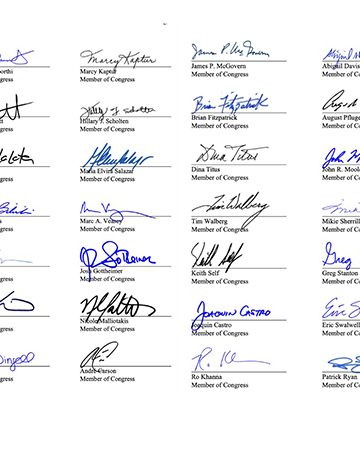 orthi
gress
tt
gress
gress
gress
gress
gress
Dingell
gress
Marcy Kaptur
Marcy Kaptur
Member of Congress
Hillary J. Scholten
Hillary J. Scholten
Member of Congress
Maria Elvira Salazar
Member of Congress
Marc A. Veasey
Member of Congress
Josh Gottheimer
Josh Gottheimer
Member of Congress
Nicole Malliotakis
Member of Congress
André Carson
Member of Congress
James P. McGovern
James P. McGovern
Member of Congress
Brian Fitzpatrick
Brian Fitzpatrick
Member of Congress
Dina Titus
Dina Titus
Member of Congress
Tim Walberg
Tim Walberg
Member of Congress
Keith Self
Keith Self
Member of Congress
Joaquin Castro
Joaquin Castro
Member of Congress
Ro Khanna
Member of Congress
Abigail
Abigail Davis
Member of Co
August
August Pfluge
Member of Co
John
John R. Moole
Member of Co
Mikie Sherrill
Member of Co
Greg
Greg Stanton
Member of Co
Eric S
Eric Swalwell
Member of Co
Patrick Ryan
Member of Co